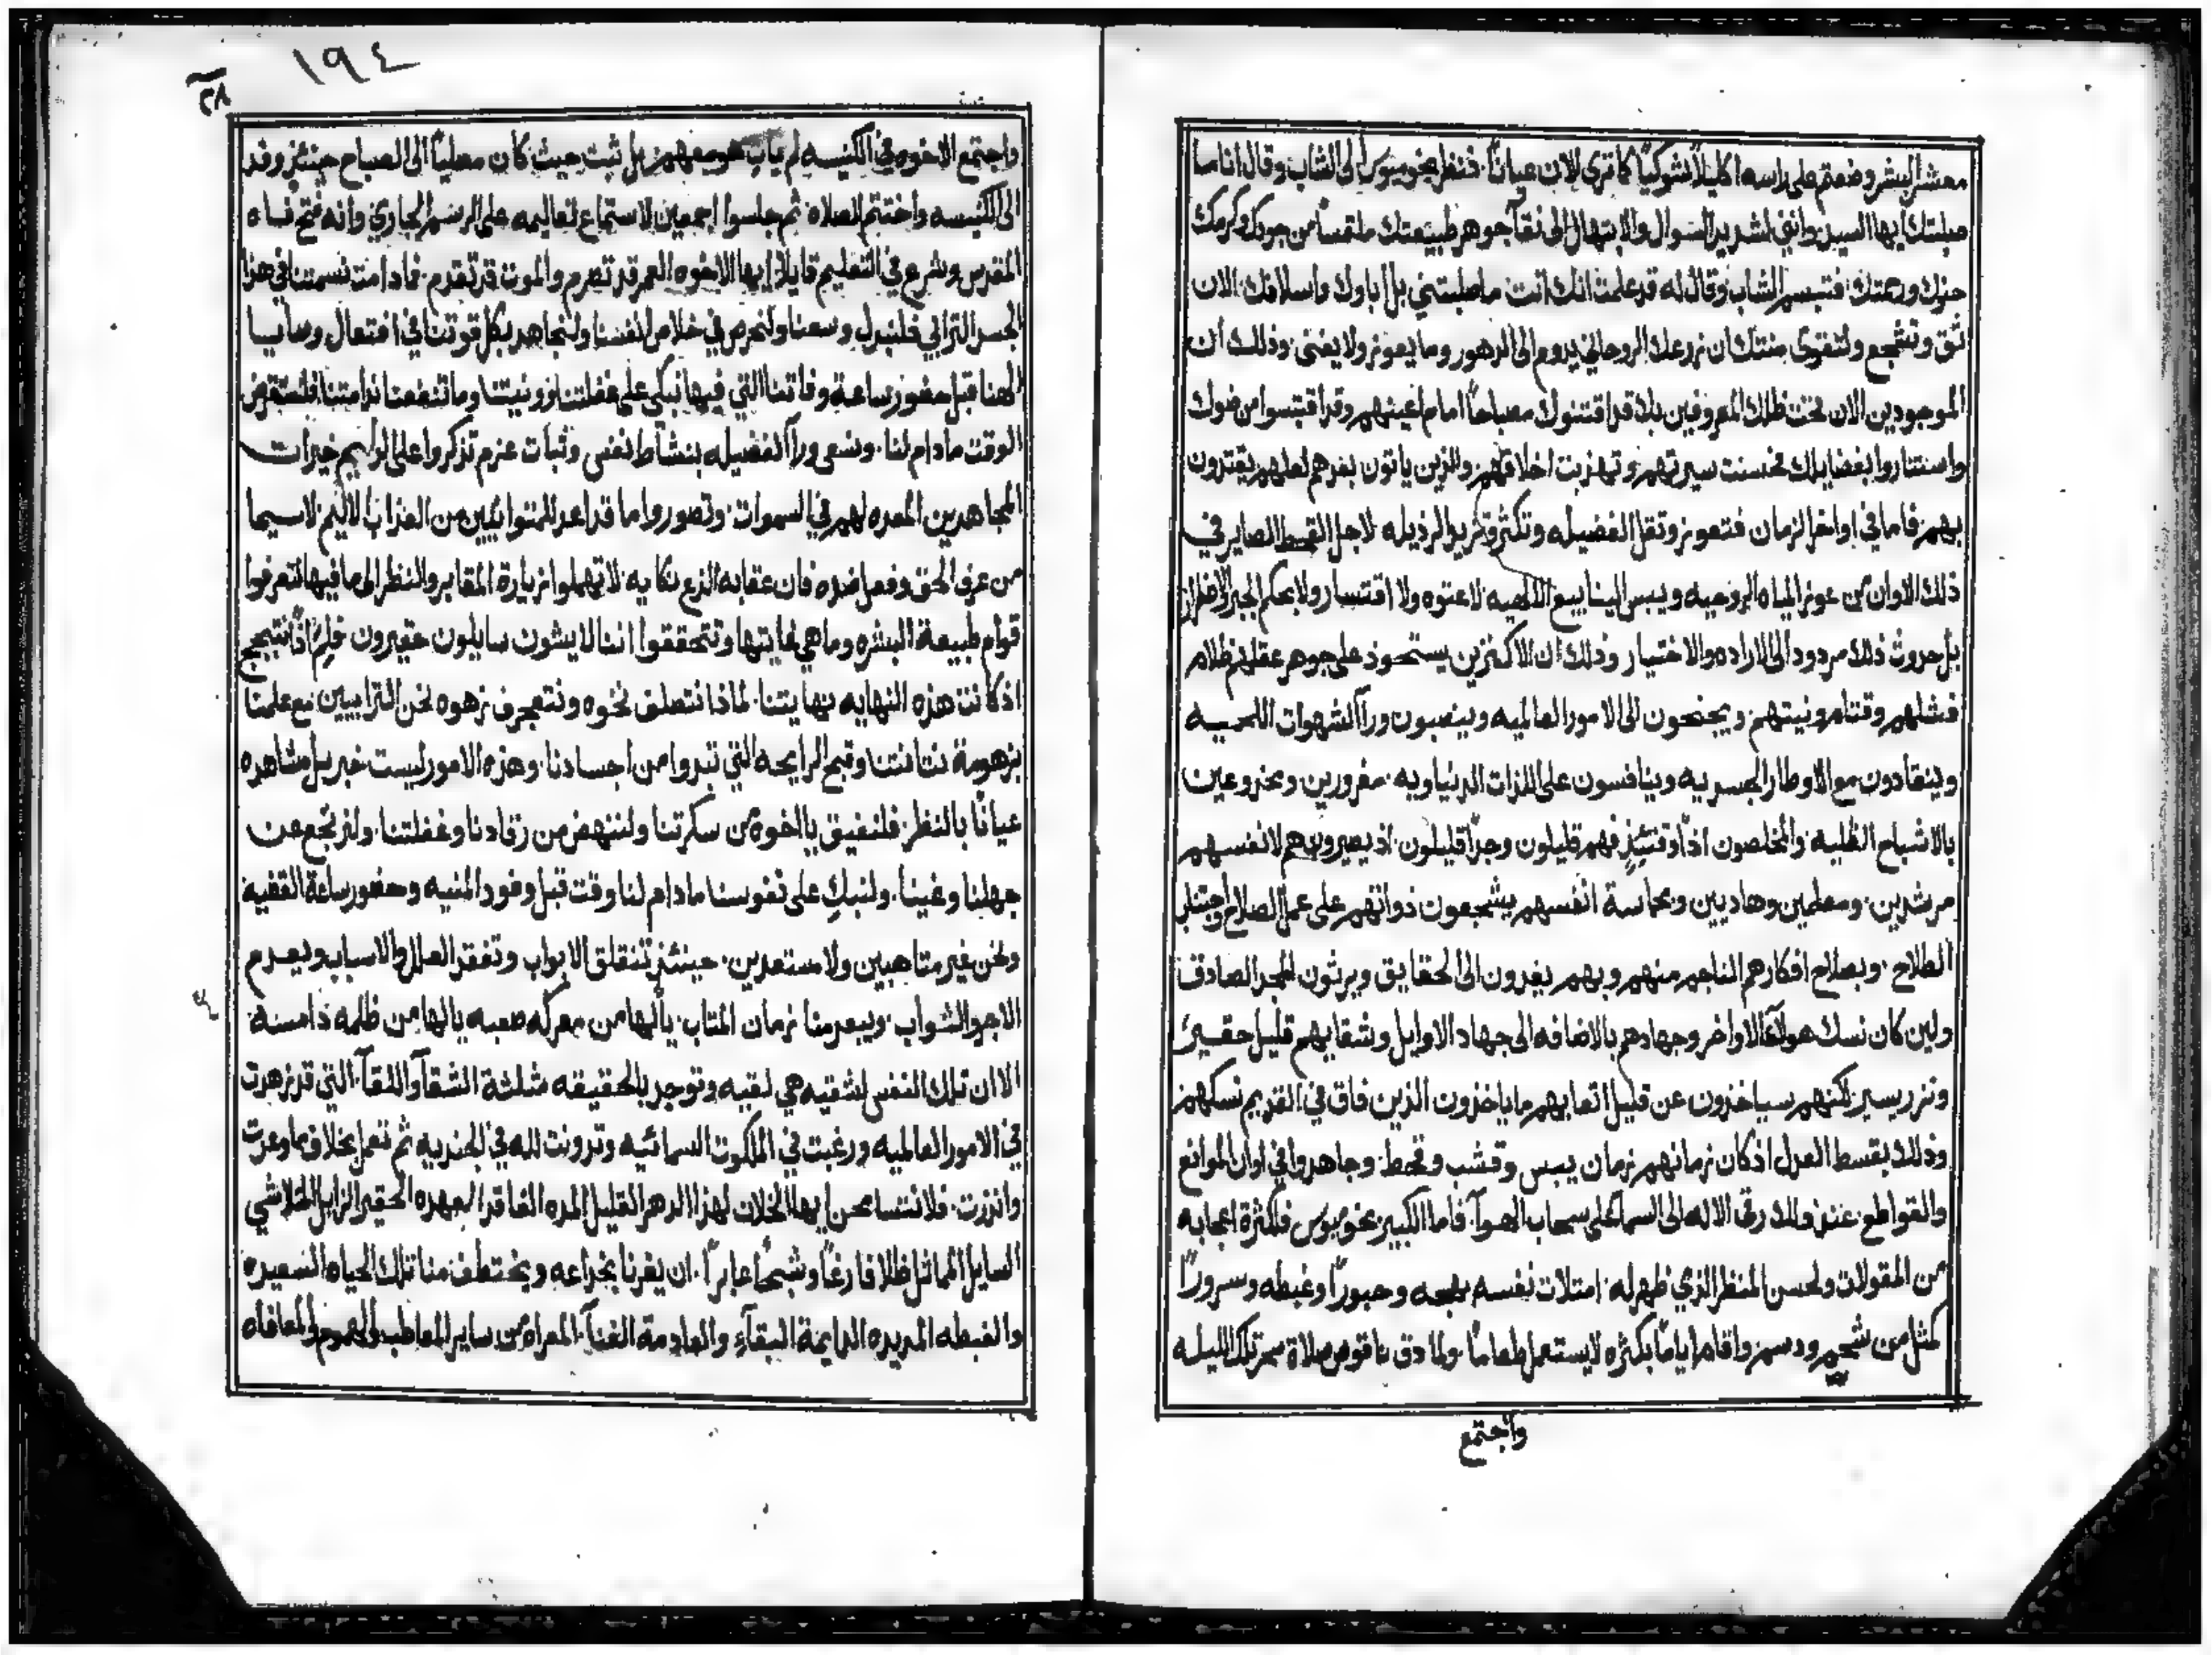 معشر البشر وضعتم على راسه اكليلاً شوكياً كما ترى الان عياناً. فنظر بخوميوس الى الشاب وقال انا ما
صلبتك ايها السيد وانني لشديد السوال والابتهال الى نقآ جوهر طبيعتك ملتمساً من جودك وكرمك
حنوك ورحمتك فتبسم الشاب وقال له قد علمت انك انت ما صلبتني بل اباوك واسلافك الان
ثق وتشجع ولتقوى منتك ان زرعك الروحاني يدوم الى الدهور وما يعوز ولا يفنى وذلك ان
الموجودين الان تحت ظلك المعروفين بك قد اقتنوك مصباحاً امام اعينهم وقد اقتبسوا من ضوك
واستناروا بفضايلك فحسنت سيرتهم وتهذبت اخلاقهم والذين ياتون بعدهم لعلهم يقتدون
بهم فاما في اواخر الزمان فتعوز وتقل الفضيله وتكثر وتزيد الرذيله لاجل القحط الصاير في
ذلك الاوان من عوز المياه الروحيه ويبس الينابيع اللاهيه لا عتوه ولا اقتسار ولا بحكم الجبر والاضطرار
بل حدوث ذلك مردود الى الاراده والاختيار وذلك ان الاكثرين يستحوذ على جوهر عقلهم ظلام
فشلهم وقتام ونيتهم ويجنحون الى الامور العالميه وينصبون ورآ الشهوات اللحميه
وينقادون مع الاوطار الجسديه وينافسون على اللذات الدنياويه مغرورين ومخدوعين
بالاشباح الظليه والمخلصون اذاً وقتئذٍ فهم قليلون وجداً قليلون اذ يصيرون هم لانفسهم
مرشدين ومعلمين وهاديين وبحماسة انفسهم يشجعون ذواتهم على عمل الصلاح واجتناب
الطلاح وبصلاح افكارهم الناجم منهم وبهم يغدون الى الحقايق ويرثون المجد الصادق
ولين كان نسك هولآ الاواخر وجهادهم بالاضافه الى جهاد الاوايل وشقايهم قليل حقير
ونزر يسير لكنهم سياخذون عن قليل اتعابهم ما ياخذون الذين فاق في القديم نسكهم
وذلك بقسط العدل اذ كان زمانهم زمان يبس وقشب وقحط وجاهدوا في اوان الموانع
والقواطع عند ذلك رقى الاله الى السما على سحاب الهوآ. فاما الكبير بخوميوس فلكثرة اعجابه
من المقولات ولحسن المنظر الذي ظهر له امتلات نفسه بهجه وحبوراً وغبطه وسروراً
كمثل من شحم ودسم واقام اياماً بكثره لا يستعمل طعاماً ولما دق ناقوس صلاة سحر تلك الليله
واجتمع
١٩٤
واجتمع الاخوه في الكنيسه لم يات هو معهم بل ثبت حيث كان مصلياً الى الصباح حينئذ وفد
الى الكنيسه واختتم الصلاه ثم جلسوا اجمعين لاستماع تعاليمه على الرسم الجاري وانه فتح فاه
المقدس وشرع في التعليم قايلاً ايها الاخوه العمر قد تصرم والموت قد تقدم فما دامت نسمتنا في هذا
الجسد الترابي فلنبذل وسعنا ولنحرص في خلاص انفسنا ولنجاهد بكل قوتنا في افتعال وصايا
الهنا قبل حضور ساعة وفاتنا التي فيها نبكي على غفلتنا ونيتنا وما تنفعنا ندامتنا فلنستفرض
الوقت ما دام لنا. ونسعى ورآ الفضيله بنشاط نفس وثبات عزم تذكروا على الدايم خيرات
المجاهدين المعده لهم في السموات وتصوروا ما قد اعد للمتوانيين من العذاب الاليم لا سيما
من عرف الحق وفعل ضده فان عقابه الذع نكايه لا تهملوا زيارة المقابر والنظر الى ما فيها لتعرفوا
قوام طبيعة البشره وما هي غايتها وتتحققوا اننا لا يشون سايلون حقيرون فلم اذاً نتبجح
اذ كانت هذه النهايه نهايتنا. لماذا نتصلف نخوه ونتعجرف زهوه نحن الترابيين مع علمنا
بزهومة نتانتنا وقبح الرايحه التي تبدوا من اجسادنا. وهذه الامور ليست خبر بل مشاهده
عياناً بالنظر. فلنفيق يا اخوه من سكرتنا ولننهض من رقادنا وغفلتنا. ولنرتجع عن
جهلنا وغينا. ولنبكِ على نفوسنا ما دام لنا وقت قبل وفود المنيه وحضور ساعة القضيه
ونحن غير متاهبين ولا مستعدين. حينئذ تنغلق الابواب وتفقد العلل والاسباب ويعدم
الاجر والثواب ويبعد منا زمان المتاب. يا لها من معركه صعبه يا لها من ظلمه دامسة
الا ان تلك النفس لشقيه هي لغبيه وتوجد بالحقيقه مثلثة الشقآ واللقآ التي قد زهدت
في الامور العالميه ورغبت في الملكوت السمائيه وتدونت لله في الجنديه ثم تعمل بخلاف ما وعدت
وانذرت. فلا نتسامحن ايها الخلان لهذا الدهر القليل المده الفاقد العهده الحقير الزايل المتلاشي
السايل المماثل ظلا فارغاً وشبحاً عابراً. ان يغرنا بخداعه ويختطف منا تلك الحياه السعيده
والغبطه المديده الدايمة البقآء والعادمة الفنآ. المعراه من ساير المعاطب والهموم والمعافاه